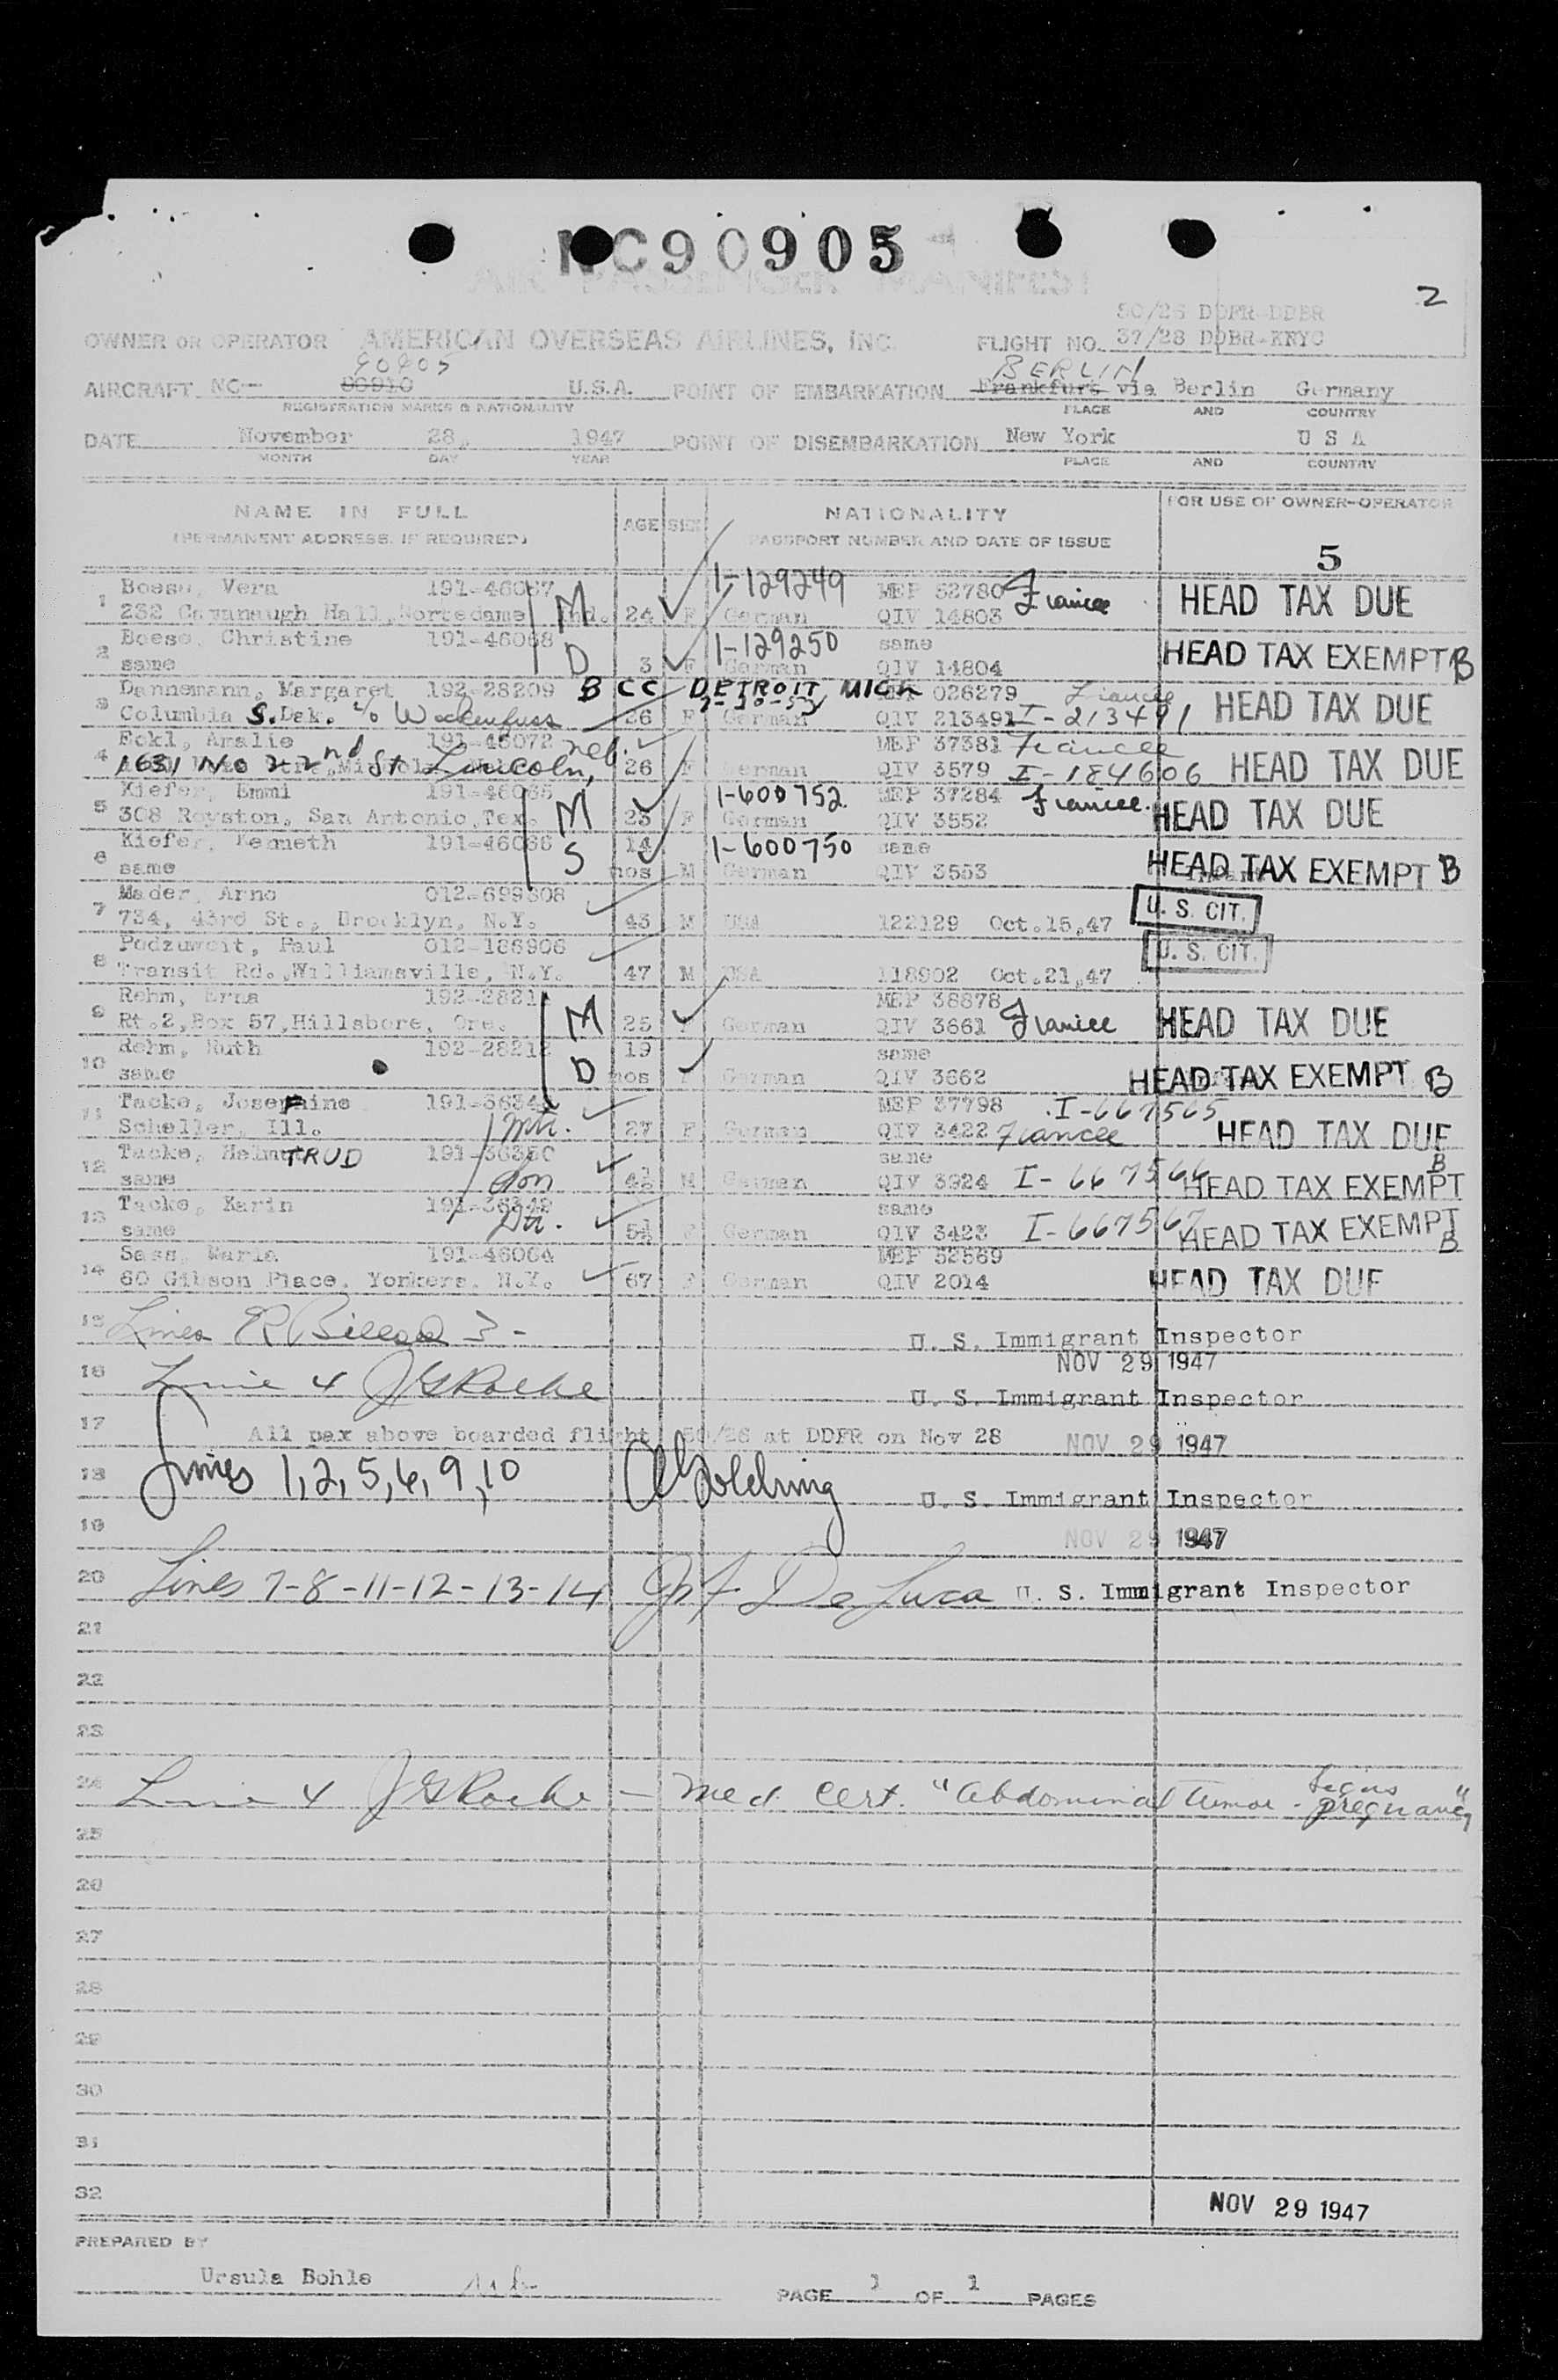 NC90905
AIR PASSENGER MANIFEST
2
50/26 DDFR-DDBR
OWNER OR OPERATOR AMERICAN OVERSEAS AIRLINES, INC. FLIGHT NO. 37/28 DDBR-KNYC
90905 BERLIN
AIRCRAFT NC- 90910 U.S.A. POINT OF EMBARKATION Frankfurt via Berlin Germany
REGISTRATION MARKS & NATIONALITY PLACE AND COUNTRY
DATE November 28, 1947 POINT OF DISEMBARKATION New York U S A
MONTH DAY YEAR PLACE AND COUNTRY
NAME IN FULL AGE SEX NATIONALITY FOR USE OF OWNER-OPERATOR
(PERMANENT ADDRESS, IF REQUIRED) PASSPORT NUMBER AND DATE OF ISSUE
5
1 Boese, Vera 191-46067 1-129249 MEP 52780 Fiancee HEAD TAX DUE
232 Cavanaugh Hall, Nortedame Ind. M 24 F German QIV 14803
2 Boese, Christine 191-46068 1-129250 same
same D 3 F German QIV 14804 HEAD TAX EXEMPT B
3 Dannemann, Margaret 192-28209 B CC DETROIT, MICH 026279 Fiancee HEAD TAX DUE
Columbia S.Dak. c/o Wockenfuss 26 F German QIV 213491 I-213491
4 Eckl, Amalie 191-46072 neb. MEP 37381 Fiancee
1631 No 22nd St Lincoln, 26 F German QIV 3579 I-184606 HEAD TAX DUE
5 Kiefer, Emmi 191-46065 1-600752 MEP 37284 Fiancee
308 Royston, San Antonio, Tex. M 23 F German QIV 3552 HEAD TAX DUE
6 Kiefer, Kenneth 191-46066 14 1-600750 same
same S mos M German QIV 3553 HEAD TAX EXEMPT B
7 Mader, Arno 012-699308 U. S. CIT.
734, 43rd St., Brooklyn, N.Y. 43 M USA 122129 Oct.15,47
8 Podzuweit, Paul 012-186906 U. S. CIT.
Transit Rd., Williamsville, N.Y. 47 M USA 118902 Oct.21,47
9 Rehm, Erna 192-2821 MEP 38878
Rt.2, Box 57, Hillsboro, Ore. M 25 F German QIV 3661 Fiancee HEAD TAX DUE
10 Rehm, Ruth 192-28212 19 same
same D mos F German QIV 3662 HEAD TAX EXEMPT B
11 Tacke, Josefine 191-3634 MEP 37798 I-667565
Scheller, Ill. mtr. 27 F German QIV 3422 Fiancee HEAD TAX DUE
12 Tacke, HelmuTRUD 191-36350 same B
same Son 4½ M German QIV 3924 I-667566 HEAD TAX EXEMPT
13 Tacke, Karin 191-36349 same
same Dtr. 5½ F German QIV 3423 I-667567 HEAD TAX EXEMPT B
14 Sass, Maria 191-46064 MEP 52569
60 Gibson Place, Yonkers, N.Y. 67 F German QIV 2014 HEAD TAX DUE
15 Lines 3 - U. S. Immigrant Inspector
NOV 29 1947
16 Line 4 JGRoche U. S. Immigrant Inspector
17 All pax above boarded flight 50/26 at DDFR on Nov 28 NOV 29 1947
18 Lines 1,2,5,6,9,10 AGoldring U. S. Immigrant Inspector
19 NOV 29 1947
20 Lines 7-8-11-12-13-14 De Luca U. S. Immigrant Inspector
21
22
23
24 Line 4 JGRoche - Med. Cert. "Abdominal tumor - pregnancy"
25
26
27
28
29
30
31
32
NOV 29 1947
PREPARED BY
Ursula Bohls
PAGE 1 OF 1 PAGES